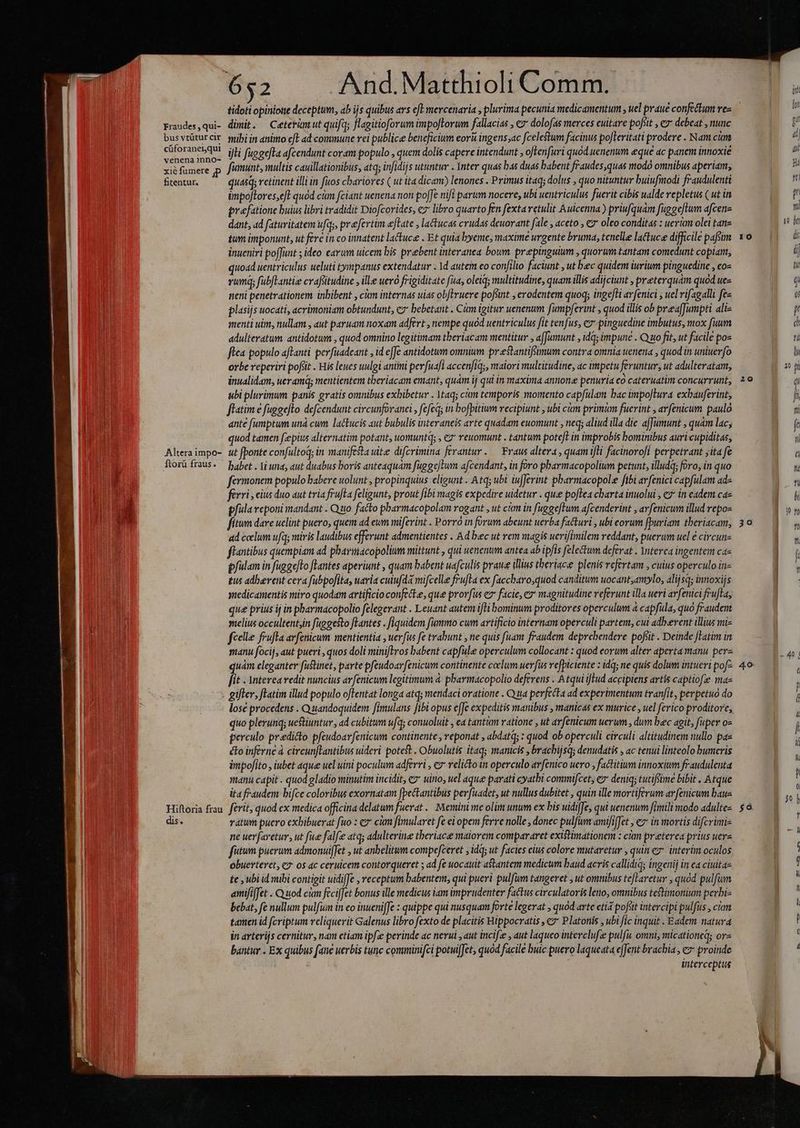 652 And. Matthioli Comm.
tidoti opinione deceptum, ab ijs quibus ars est mercenaria, plurima pecunia medicamentum, uel prauè confectum re=
Fraudes, qui-
bus vtũtur cir
cũforanei, qui
venena inno-
xiè sumere se
fitentur.
dimit. Ceterùm ut quisq; flagitiosorum impostorum fallacias, & dolosas merces euitare possit, & debeat, nunc
mihi in animo est ad commune rei publicæ beneficium eorũ ingens, ac scelestum facinus posteritati prodere. Nam cùm
isti suggesta ascendunt coram populo, quem dolis capere intendunt, ostensuri quòd uenenum æquè ac panem innoxiè
sumunt, multis cauillationibus, atq; insidijs utuntur. Inter quas has duas habent fraudes, quas modò omnibus aperiam,
quasq; retinent illi in suos chariores (ut ita dicam) lenones. Primus itaq; dolus, quo nituntur huiusmodi fraudulenti
impostores, est quòd cùm sciant uenena non posse nisi parum nocere, ubi uentriculus fuerit cibis ualde repletus (ut in
præfatione huius libri tradidit Dioscorides, & libro quarto fen sexta retulit Auicenna) priusquàm suggestum ascen=
dant, ad saturitatem usq;, præsertim æstate, lactucas crudas deuorant sale, aceto, & oleo conditas: uerùm olei tan=
tum imponunt, ut ferè in eo innatent lactucæ. Et quia hyeme, maximè urgente bruma, tenellæ lactucæ difficilè passim 10
inueniri possunt; ideo earum uicem his præbent interanea boum præpinguium, quorum tantam comedunt copiam,
quoad uentriculus ueluti tympanus extendatur. Id autem eo consilio faciunt, ut hæc quidem iurium pinguedine, eo=
rumq; substantiæ crassitudine, illæ uerò frigiditate sua, oleiq; multitudine, quam illis adijciunt, præterquàm quòd ue=
neni penetrationem inhibent, cùm internas uias obstruere possint, erodentem quoq; ingesti arsenici, uel risagalli (se=
plasijs uocati, acrimoniam obtundunt, & hebetant. Cùm igitur uenenum sumpserint, quod illis ob præassumpti ali=
menti uim, nullam, aut paruam noxam adfert, nempe quòd uentriculus sit tensus, & pinguedine imbutus, mox suum
adulteratum antidotum, quod omnino legitimam theriacam mentitur, assumunt, idq; impune. Quo fit, ut facilè po=
stea populo astanti persuadeant, id esse antidotum omnium præstantissimum contra omnia uenena, quod in uniuerso
orbe reperiri possit. His leues uulgi animi persuasi accensiq;, maiori multitudine, ac impetu feruntur, ut adulteratam,
inualidam, ueramq; mentientem theriacam emant, quàm ij qui in maxima annonæ penuria eò cateruatim concurrunt, 20
ubi plurimum panis gratis omnibus exhibetur. Itaq; cùm temporis momento capsulam hac impostura exhauserint,
statim è suggesto descendunt circunforanei, seseq; in hospitium recipiunt, ubi cùm primùm fuerint, arsenicum paulò
antè sumptum unà cum lactucis aut bubulis interaneis arte quadam euomunt, neq; aliud illa die assumunt, quàm lac,
quod tamen sæpius alternatim potant, uomuntq;, & reuomunt. tantum potest in improbis hominibus auri cupiditas,
Altera impo-
storũ fraus.
ut sponte consultoq; in manifesta uitæ discrimina ferantur. Fraus altera, quam isti facinorosi perpetrant, ita se
habet. Ij una, aut duabus horis antequàm suggestum ascendant, in foro pharmacopolium petunt, illudq; foro, in quo
sermonem populo habere uolunt, propinquius eligunt. Atq; ubi iusserint pharmacopolæ sibi arsenici capsulam ad=
ferri, eius duo aut tria frusta seligunt, prout sibi magis expedire uidetur. quæ postea charta inuolui, & in eadem ca=
psula reponi mandant. Quo facto pharmacopolam rogant, ut cùm in suggestum ascenderint, arsenicum illud repo=
situm dare uelint puero, quem ad eum miserint. Porrò in forum abeunt uerba facturi, ubi eorum spuriam theriacam, 30
ad cœlum usq; miris laudibus efferunt admentientes. Ad hæc ut rem magis uerisimilem reddant, puerum uel è circun=
stantibus quempiam ad pharmacopolium mittunt, qui uenenum antea ab ipsis selectum deferat. Interea ingentem ca=
psulam in suggesto stantes aperiunt, quam habent uasculis prauæ illius theriacæ plenis refertam, cuius operculo in=
tus adhærent cera subposita, uaria cuiusdã miscellæ frusta ex saccharo, quod canditum uocant, amylo, alijsq; innoxijs
medicamentis miro quodam artificio confecta, quæ prorsus & facie, & magnitudine referunt illa ueri arsenici frusta,
quæ prius ij in pharmacopolio selegerant. Leuant autem isti hominum proditores operculum à capsula, quò fraudem
melius occultent, in suggesto stantes. siquidem summo cum artificio internam operculi partem, cui adhærent illius mi=
scellæ frusta arsenicum mentientia, uersus se trahunt, ne quis suam fraudem deprehendere possit. Deinde statim in
manu socij, aut pueri, quos doli ministros habent capsulæ operculum collocant: quod eorum alter aperta manu per=
quàm eleganter sustinet, parte pseudoarsenicum continente cœlum uersus respiciente: idq; ne quis dolum intueri pos= 40
sit. Interea redit nuncius arsenicum legitimum à pharmacopolio deferens. Atqui istud accipiens artis captiosæ ma=
gister, statim illud populo ostentat longa atq; mendaci oratione. Qua perfecta ad experimentum transit, perpetuò do
losè procedens. Quandoquidem simulans sibi opus esse expeditis manibus, manicas ex murice, uel serico proditore,
quo plerunq; uestiuntur, ad cubitum usq; conuoluit, ea tantùm ratione, ut arsenicum uerum, dum hæc agit, super o=
perculo prædicto pseudoarsenicum continente, reponat, abdatq;: quod ob operculi circuli altitudinem nullo pa=
cto infernè à circunstantibus uideri potest. Obuolutis itaq; manicis, brachijsq; denudatis, ac tenui linteolo humeris
imposito, iubet aquæ uel uini poculum adferri, & relicto in operculo arsenico uero, factitium innoxium fraudulenta
manu capit. quod gladio minutim incidit, & uino, uel aquæ parati cyathi commiscet, & deniq; tutissimè bibit. Atque
ita fraudem hisce coloribus exornatam spectantibus persuadet, ut nullus dubitet, quin ille mortiferum arsenicum hau=
Historia frau
dis.
serit, quod ex medica officina delatum fuerat. Memini me olim unum ex his uidisse, qui uenenum simili modo adulte= 50
ratum puero exhibuerat suo: & cùm simularet se ei opem ferre nolle, donec pulsum amisisset, & in mortis discrimi=
ne uersaretur, ut suæ falsæ atq; adulterinæ theriacæ maiorem compararet existimationem: cùm præterea prius uer=
sutum puerum admonuisset, ut anhelitum compesceret, idq; ut facies eius colore mutaretur, quin & interim oculos
obuerteret, & os ac ceruicem contorqueret; ad se uocauit astantem medicum haud acris callidiq; ingenij in ea ciuita=
te, ubi id mihi contigit uidisse, receptum habentem, qui pueri pulsum tangeret, ut omnibus testaretur, quòd pulsum
amisisset. Quod cùm fecisset bonus ille medicus iam imprudenter factus circulatoris leno, omnibus testimonium perhi=
bebat, se nullum pulsum in eo inuenisse: quippe qui nusquam fortè legerat, quòd arte etiã possit intercipi pulsus, cùm
tamen id scriptum reliquerit Galenus libro sexto de placitis Hippocratis, & Platonis, ubi sic inquit. Eadem natura
in arterijs cernitur, nam etiam ipsæ perinde ac nerui, aut incisæ, aut laqueo interclusæ pulsu omni, micationeq; or=
bantur. Ex quibus sanè uerbis tunc comminisci potuisset, quòd facilè huic puero laqueata essent brachia, & proinde
interceptus